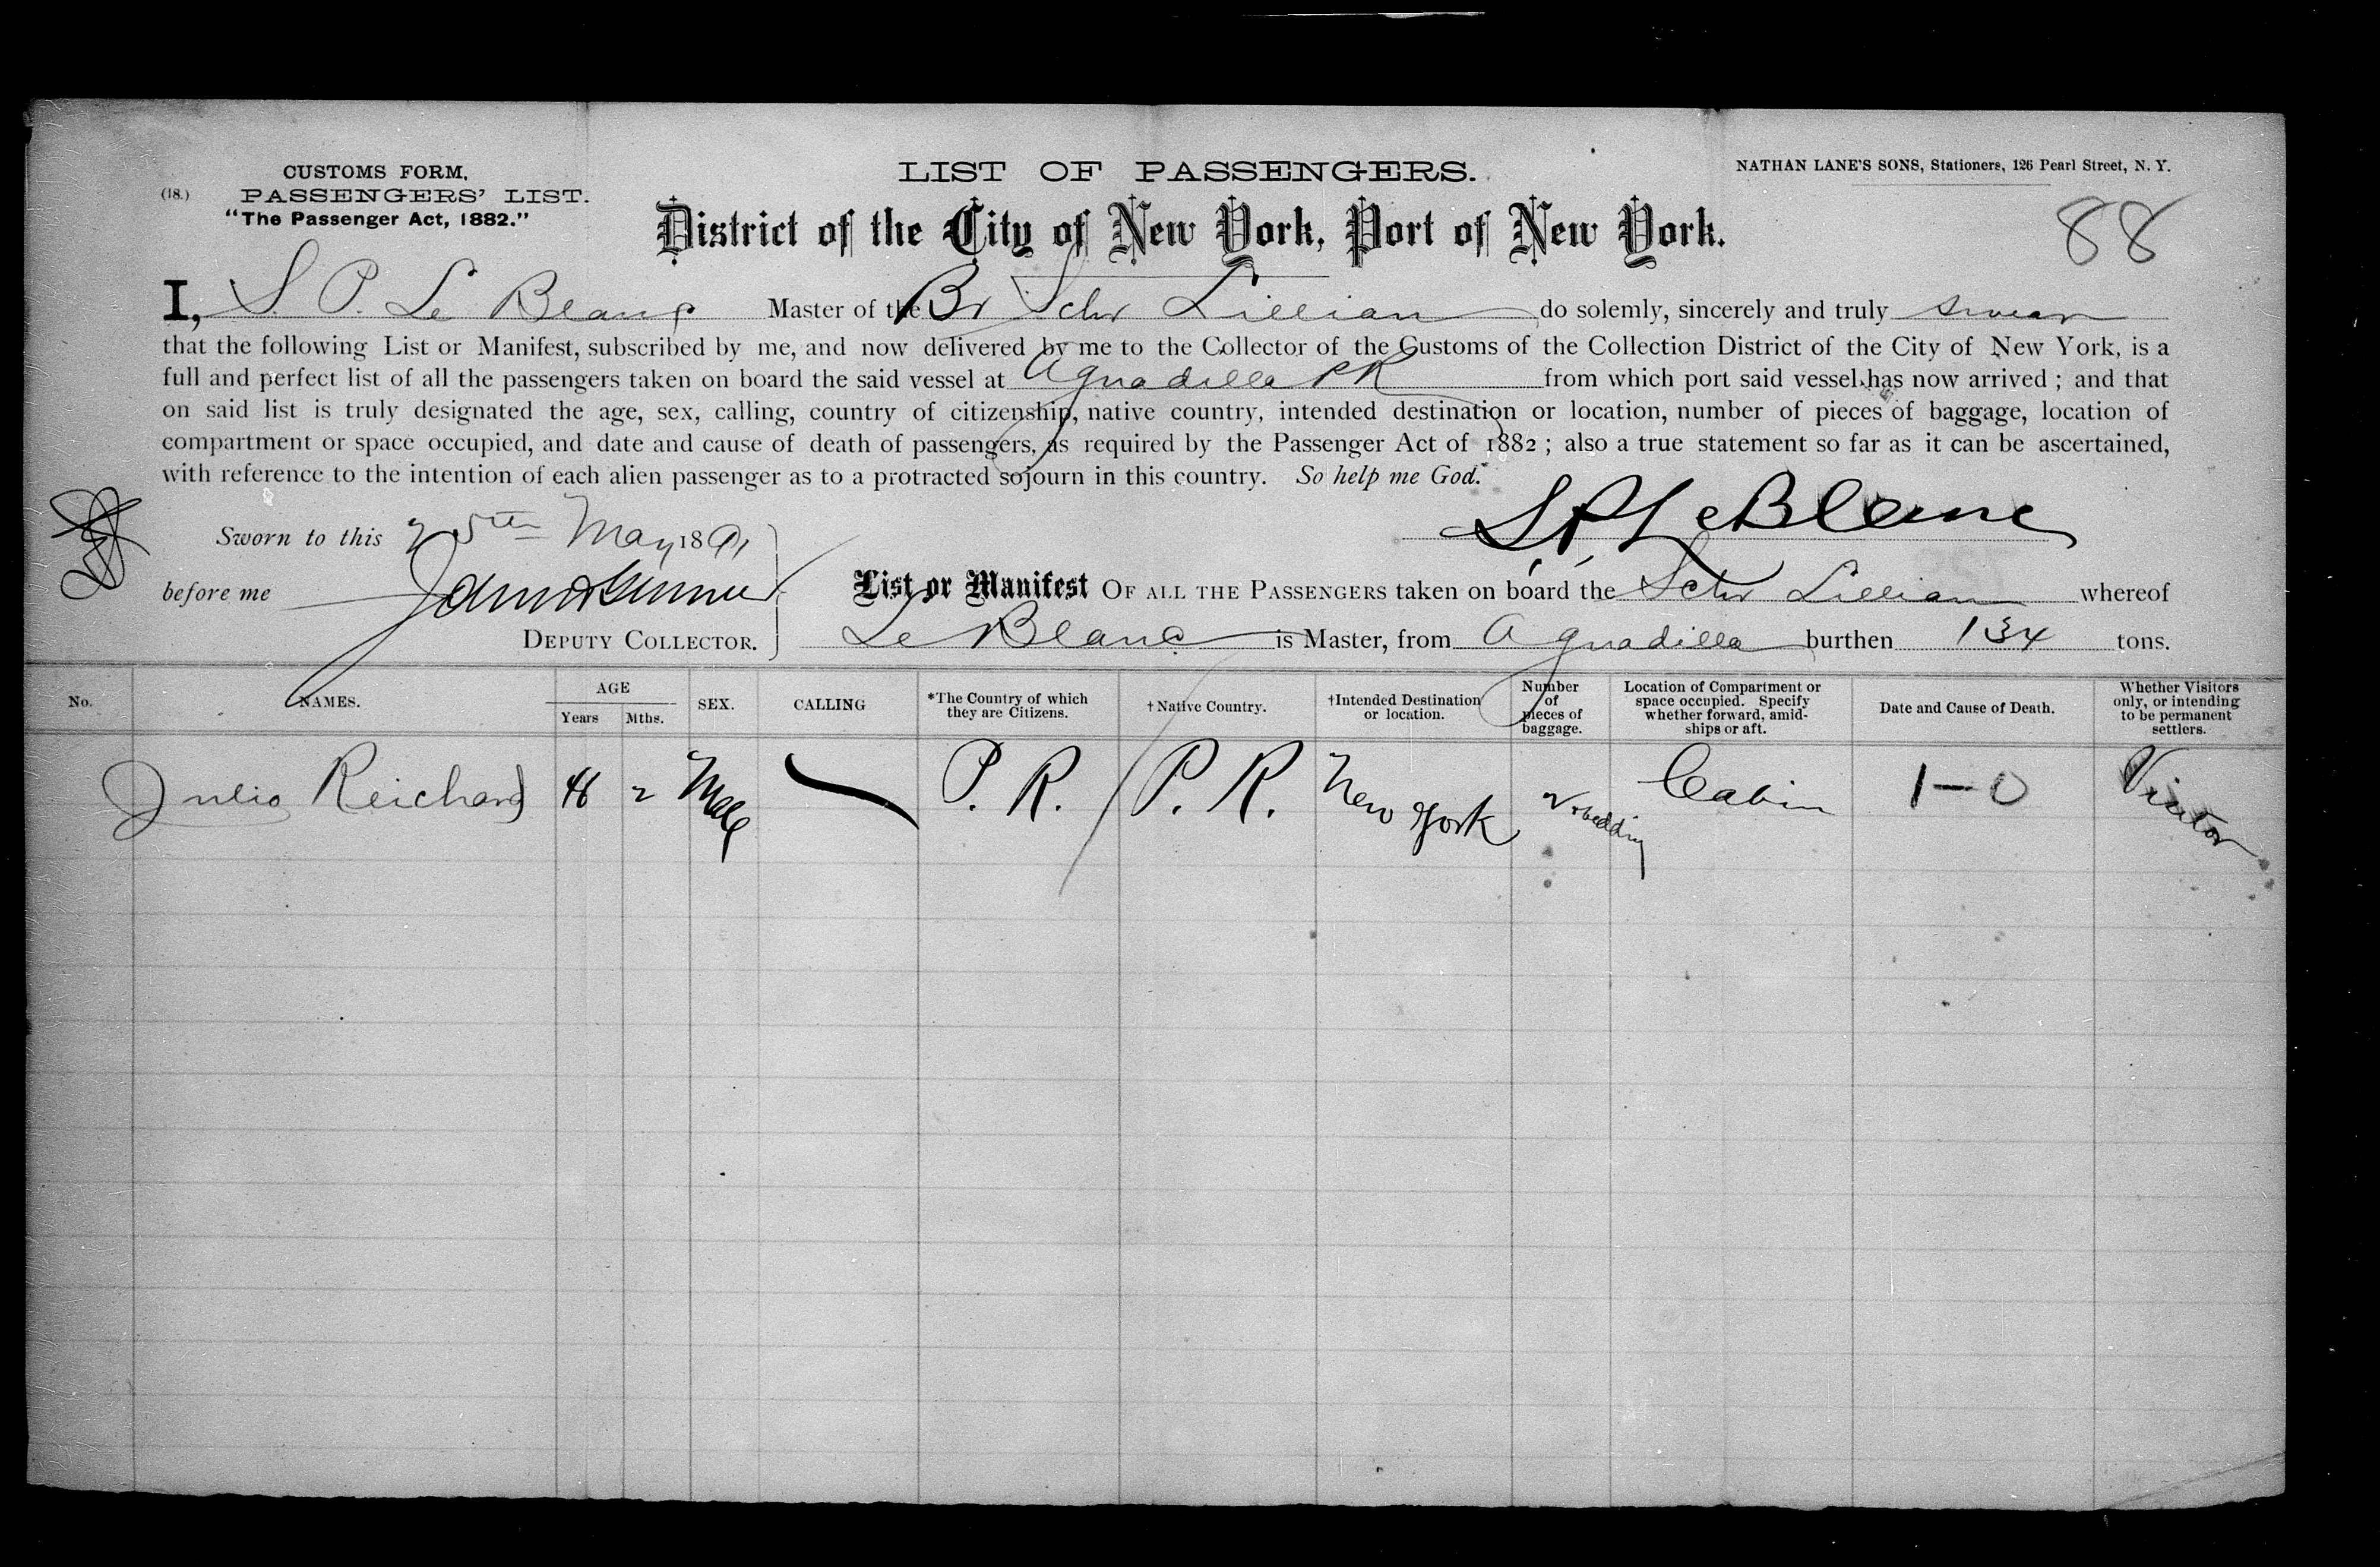 CUSTOMS FORM,
(18.) PASSENGERS' LIST.
"The Passenger Act, 1882."
LIST OF PASSENGERS.
NATHAN LANE'S SONS, Stationers, 126 Pearl Street, N. Y.
District of the City of New York, Port of New York.
88
I, S. P. Le Blanc Master of the Br Schr Lillian do solemly, sincerely and truly swear
that the following List or Manifest, subscribed by me, and now delivered by me to the Collector of the Customs of the Collection District of the City of New York, is a
full and perfect list of all the passengers taken on board the said vessel at Aguadilla PR from which port said vessel has now arrived ; and that
on said list is truly designated the age, sex, calling, country of citizenship, native country, intended destination or location, number of pieces of baggage, location of
compartment or space occupied, and date and cause of death of passengers, as required by the Passenger Act of 1882 ; also a true statement so far as it can be ascertained,
with reference to the intention of each alien passenger as to a protracted sojourn in this country. So help me God.
S. P. LeBlanc
Sworn to this 25th May 1891
before me
DEPUTY COLLECTOR.
List or Manifest OF ALL THE PASSENGERS taken on board the Schr Lillian whereof
Le Blanc is Master, from Aguadilla burthen 134 tons.
No. NAMES. AGE Years Mths. SEX. CALLING *The Country of which they are Citizens. †Native Country. †Intended Destination or location. Number of pieces of baggage. Location of Compartment or space occupied. Specify whether forward, amid-ships or aft. Date and Cause of Death. Whether Visitors only, or intending to be permanent settlers.
Julio Reichard 2 Male P. R. / P. R. New York bedding Cabin 1-0 Visitor